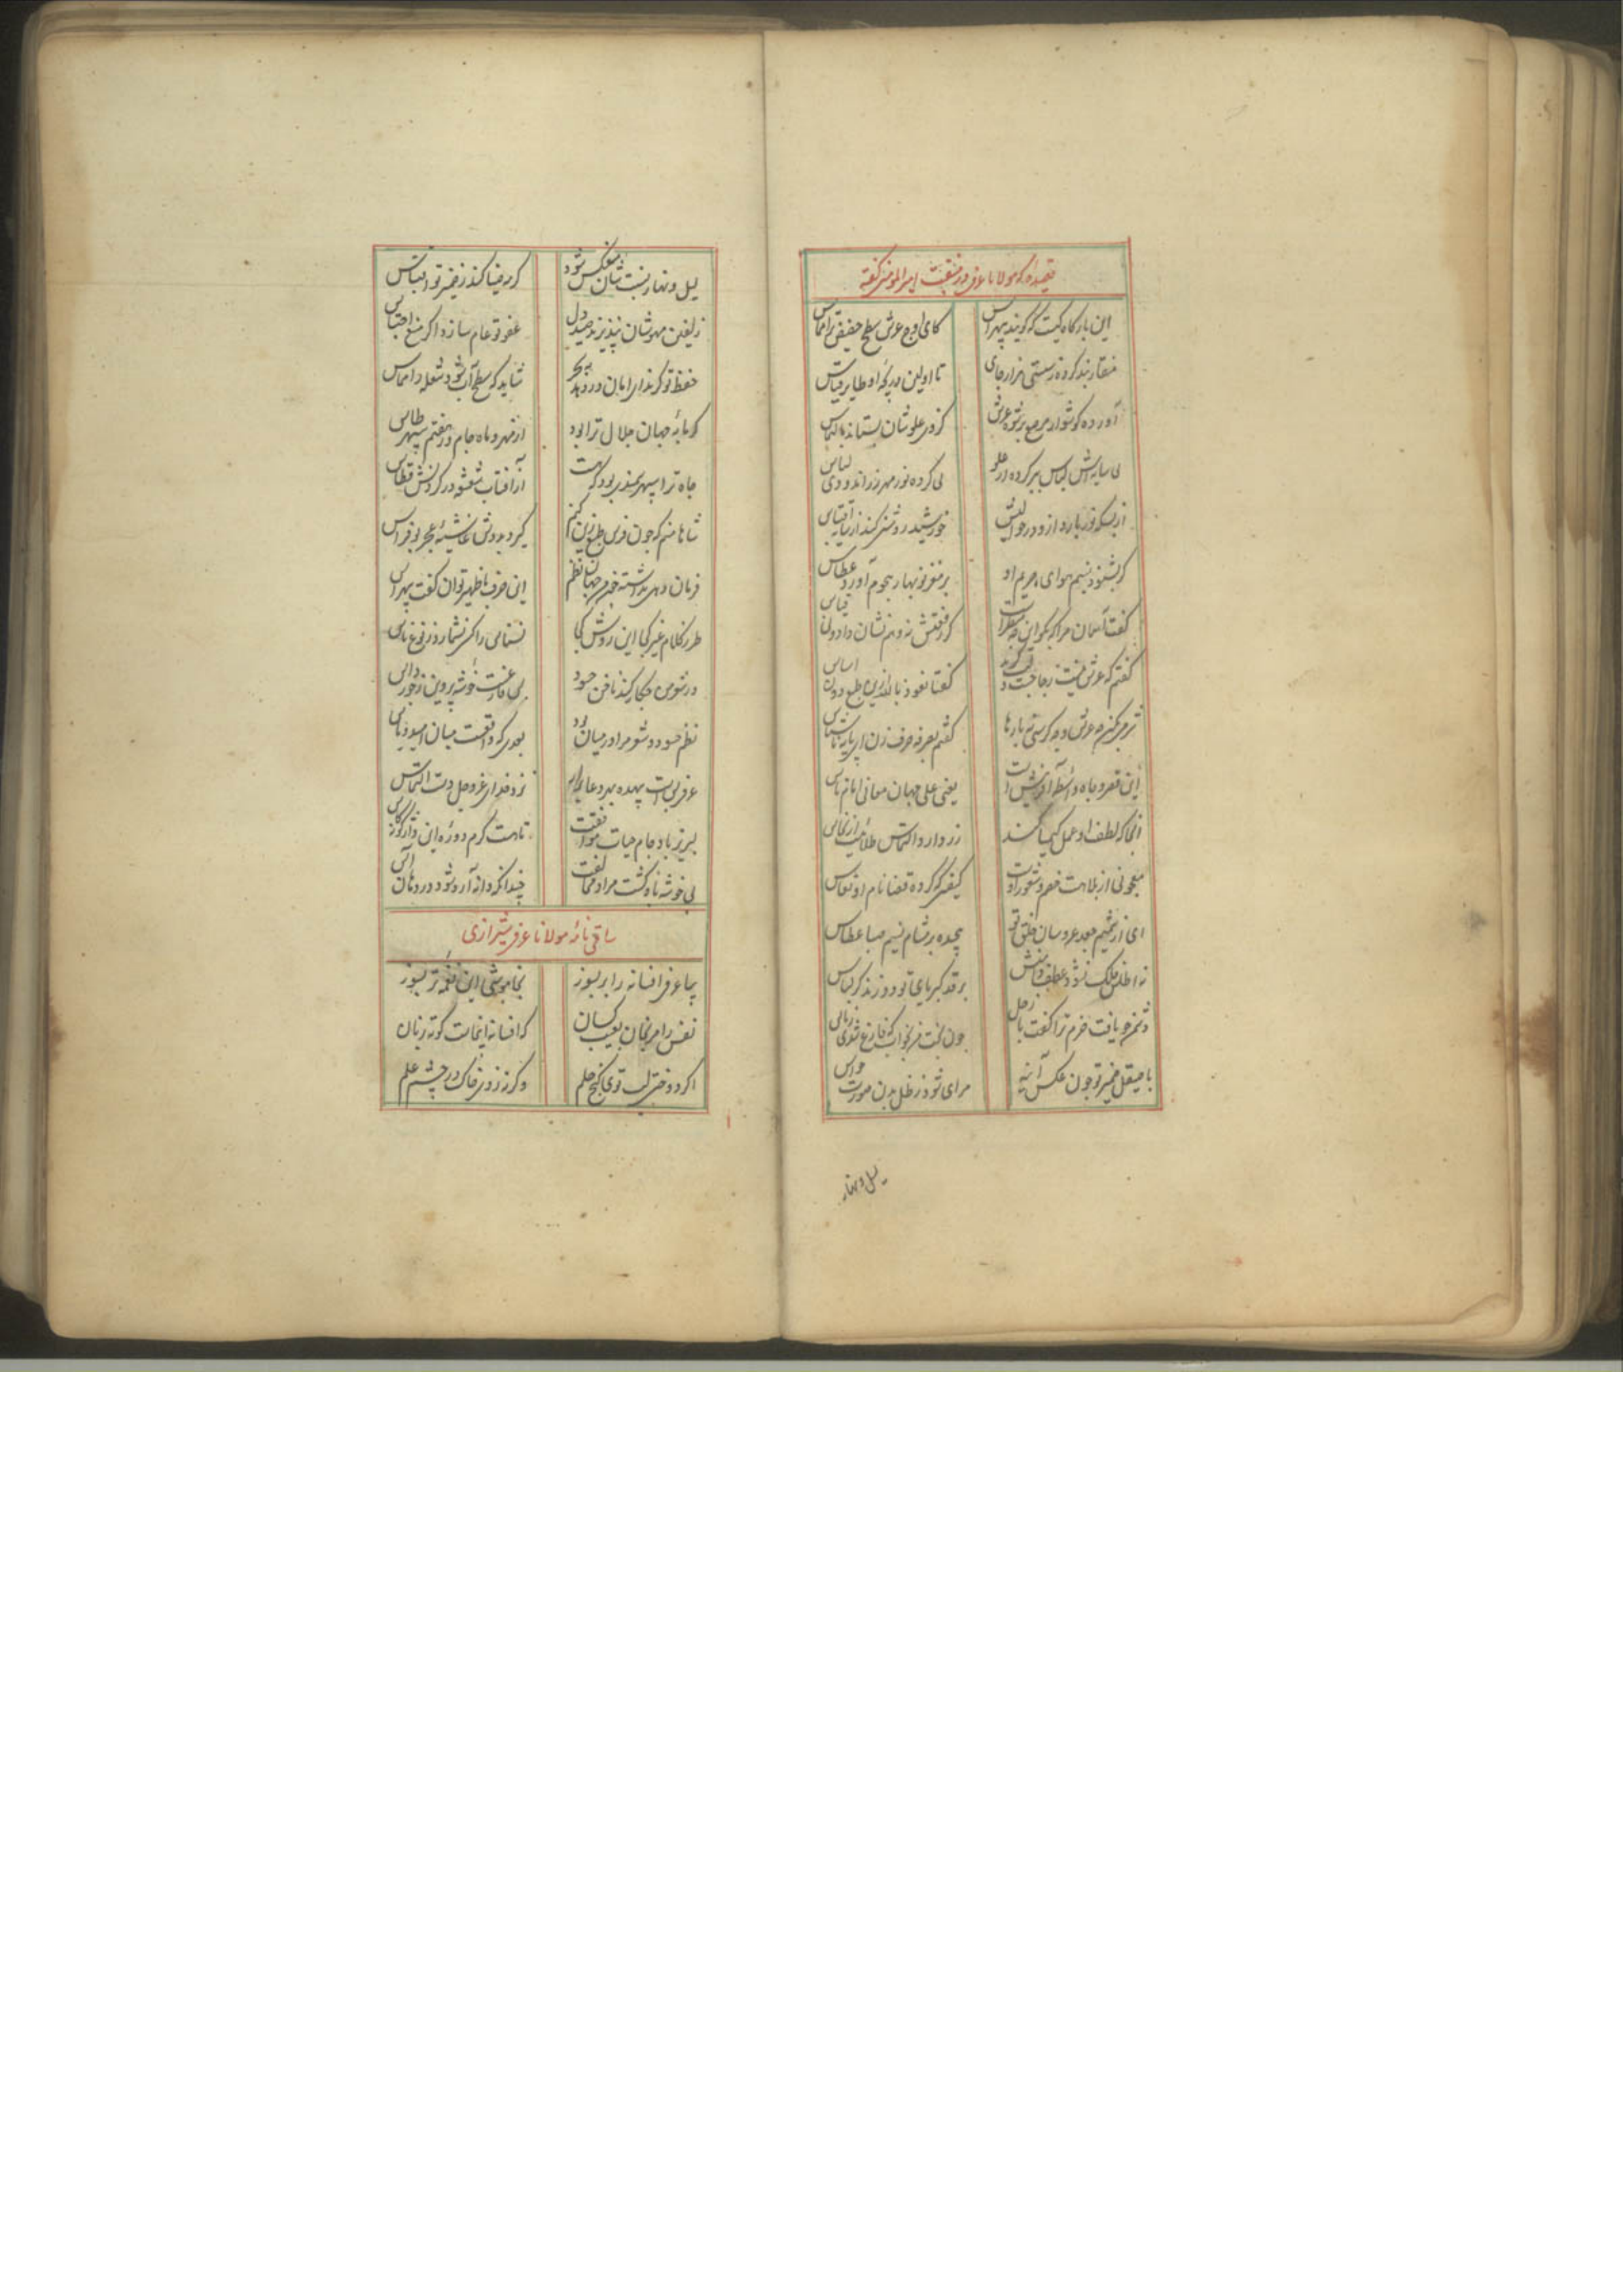 قصیده که مولانا عرفی در منقبت امیر المومنین گفته
این بارگاه کیست که گویند بی هراس
کای اوج عرش سطح حضیض ترا مماس
منقار بند کرده ز سستی هزار جای
تا اولین دریچه او طایر قیاس
آورده گوشوار مرصع برشوه عرش
کز وی علو شان بستاند بالتماس
نی سایه اش لباس ببر کرده از علو
نی کرده نور مهر زر اندود ی لباس
از بسکه نور بارد ازو در حوالیش
خورشید روشنی کند از سایه اقتباس
گر بشنود نسیم هوای حریم او
بر مغز نوبهار هجوم آورد عطاس
گفت آسمان مرا که بگو این چه منظر است
کز رفعتش نه وهم نشان داد و نی قیاس
گفتم که عرش نیست
گفتا نعوذ بالله ازین طبع دون اساس
گفتم بعرفه حرف زن ای پایه ناشناس
این قصر و جاه واسطه آفرینش است
یعنی علی جهان معانی امام ناس
آنجا که لطف او عمل کیمیا کند
زر دارد التماس طلائیت از نحاس
معجونی از بلاهت خصم و شعور اوست
کیفیتی که کرده قضا نام او نعاس
ای از شمیم جعد عروسان خلق تو
پیچیده بر مشام نسیم صبا عطاس
نه اطلس فلک نشود عطف دامنش
بر قد کبریای تو دوزند گر لباس
دشمن چو یافت حزم ترا گفت با اجل
چون بخت من بخواب که فارغ شدی ز پاس
با صیقل ضمیر تو چون عکس آینه
مرئی شود ز ظل بدن صورت حواس
لیل و نهار
لیل و نهار نسبت شان منعکس شود
گر مه ضیا کند ز ضمیر تو اقتباس
زلفین مهوشان نپذیرند صید دل
عفو تو عام سازد اگر منع احتباس
حفظ تو گر ندای امان در دهد به بحر
شاید که سطح آب شود شعله را مماس
گرمابه جهان جلال ترا بود
از مهر و ماه جام و ز هفتم سپهر طاس
جاه ترا سپهر سمندی بود که هست
از آفتاب شعشعه در گردنش قطاس
شاها منم که چون فرس طبع زین کنم
گیرد بدوش غاشیه عجز بوفراس
فرمان دهی نداشته چون من جهان نظم
این حرف با ظهیر توان گفت بی هراس
طرز کلام غیر کجا این روش کجا
نسناس را کسی نشمارد ز نوع ناس
در شعر من چکار کند ناخن حسود
بی غم است خوشه پروین ز جور داس
نظم حسود و شعر مرا در میان بود
بعدی که واقعست میان امید و یاس
عرفی بس است بیهده بهر دعا برآر
نزد خدای عز و جل دست التماس
لبریز باد جام حیات موافقت
تا هست گرم دوره این واژگونه طاس
بی خوشه باد کشت مراد مخالفت
چندانکه دانه آرد شود در دهان آس
ساقی نامه مولانا عرفی شیرازی
بیا عرفی افسانه را بر بسوز
بخاموشی این نغمه تر بسوز
نفس را مرنجان بعیب کسان
که افسانه اینجاست کوته زبان
اگر دوختی لب توی گنج حلم
وگرنه زدی خاک در چشم علم